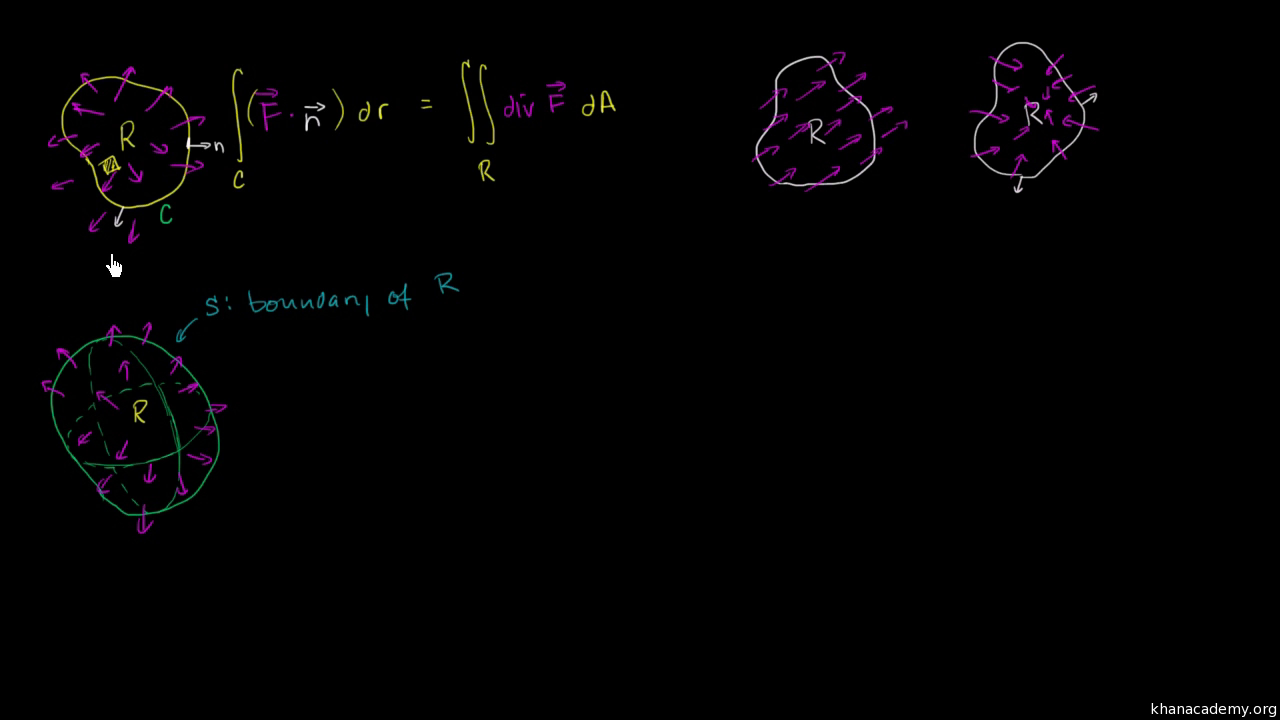 R n C
∫_C (F⃗ · n⃗) dr = ∬_R div F⃗ dA
R
R
S: boundary of R
R
khanacademy.org